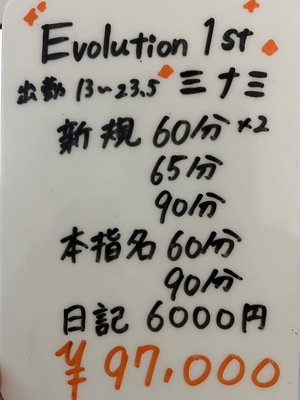 Evolution 1st
出勤 13〜23.5 三十三
新規 60分×2
65分
90分
本指名 60分
90分
日記 6000円
¥97,000